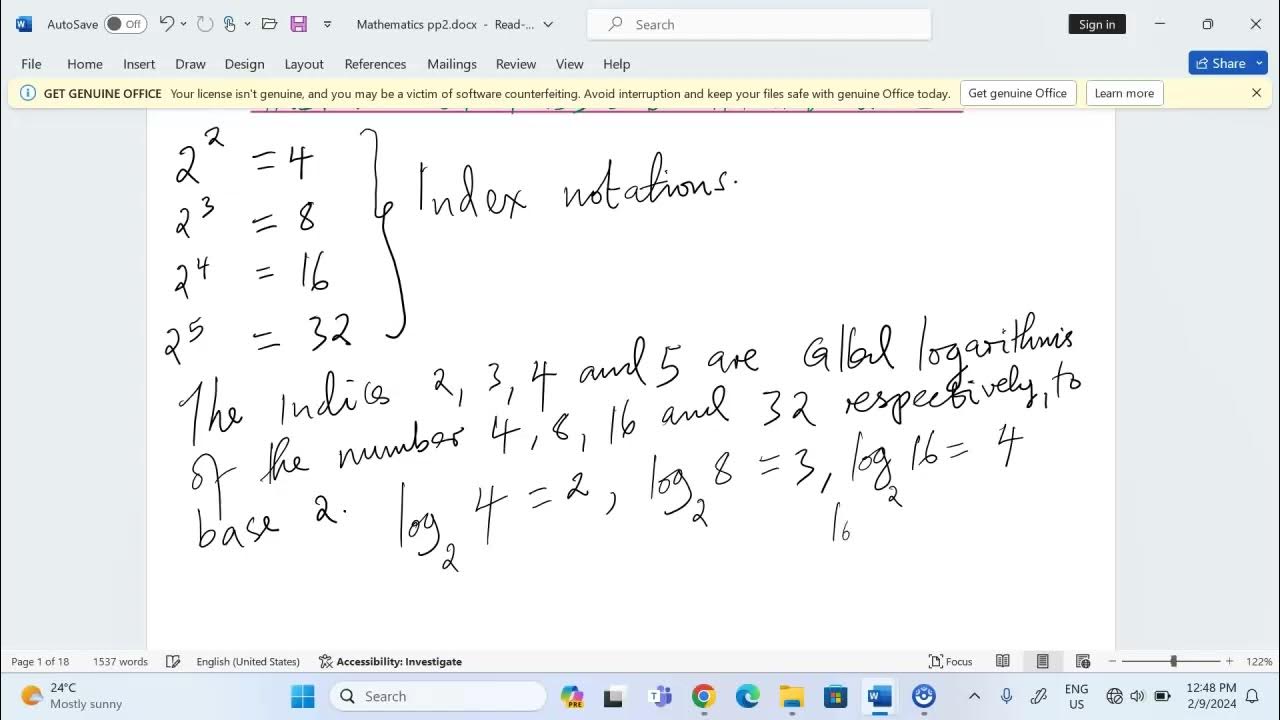 AutoSave Off Mathematics pp2.docx - Read-... Search Sign in
File Home Insert Draw Design Layout References Mailings Review View Help Share
GET GENUINE OFFICE Your license isn't genuine, and you may be a victim of software counterfeiting. Avoid interruption and keep your files safe with genuine Office today. Get genuine Office Learn more
2² = 4
2³ = 8
2⁴ = 16
2⁵ = 32
Index notations.
The indices 2, 3, 4 and 5 are called logarithms
of the number 4, 8, 16 and 32 respectively, to
base 2. log₂ 4 = 2, log₂ 8 = 3, log₂ 16 = 4
lo
Page 1 of 18 1537 words English (United States) Accessibility: Investigate Focus 122%
24°C
Mostly sunny
Search
PRE
ENG
US
12:48 PM
2/9/2024